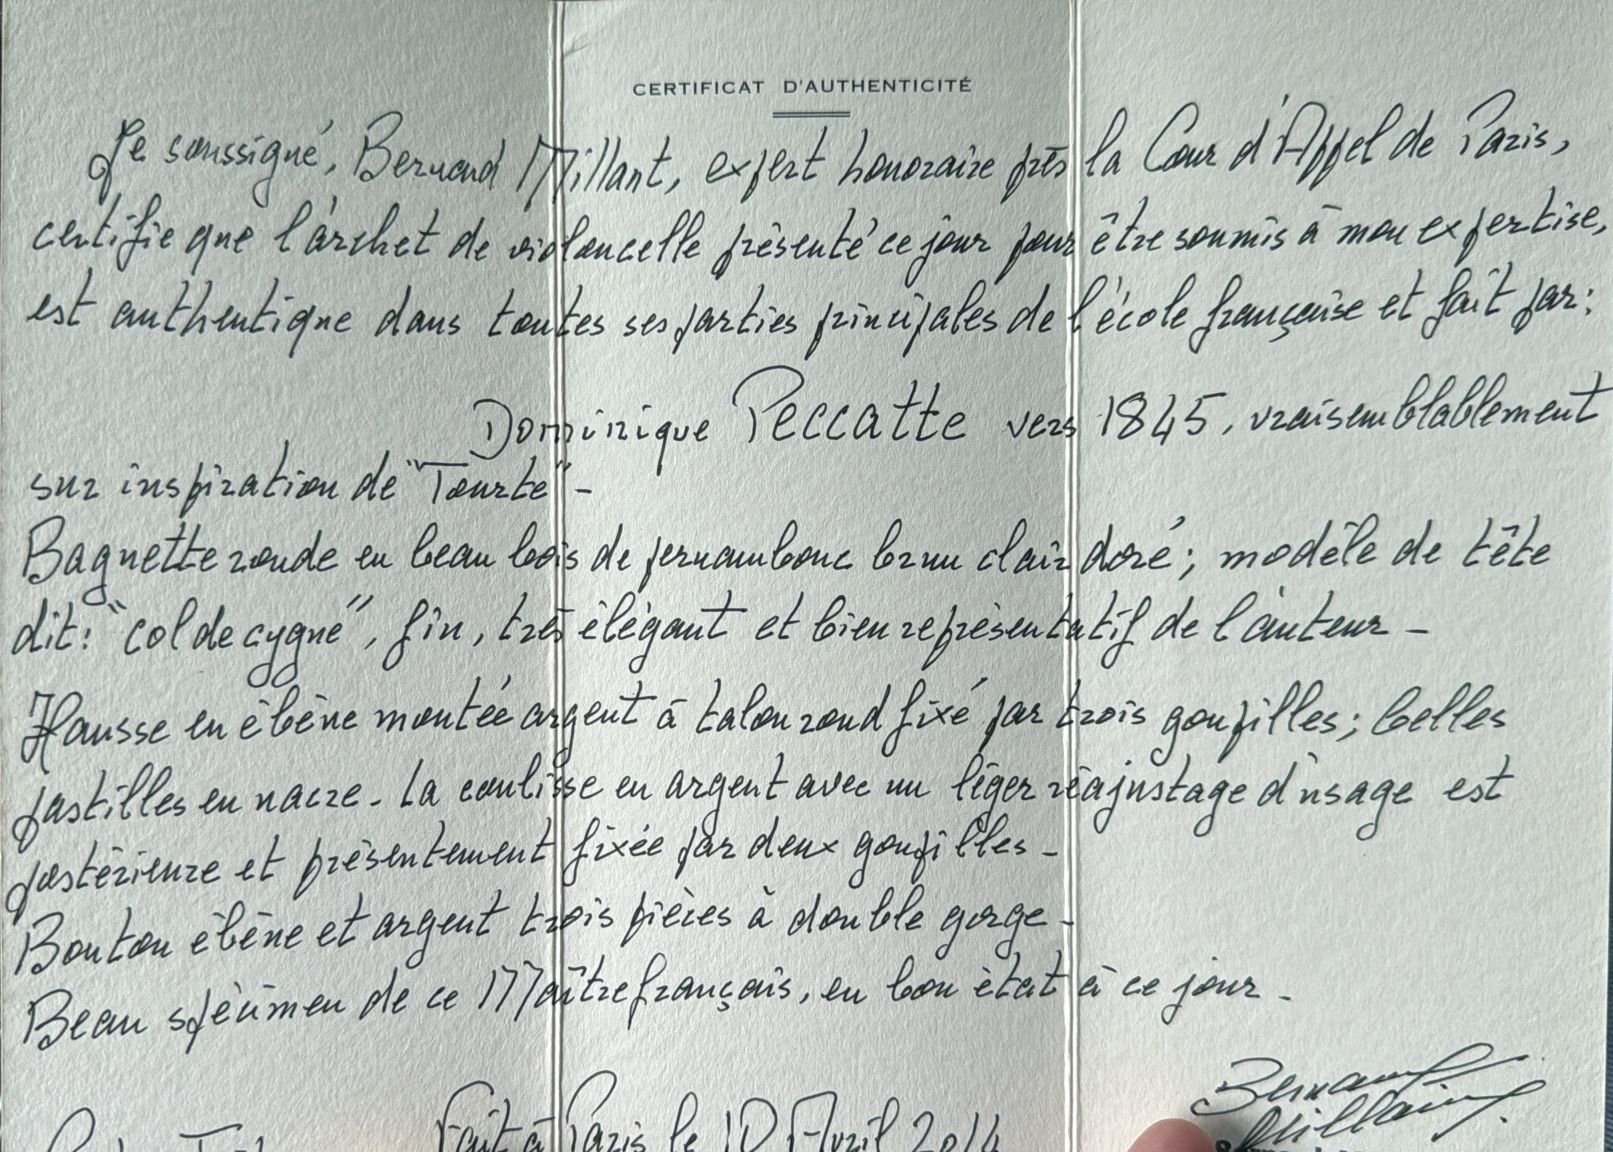 CERTIFICAT D'AUTHENTICITÉ
Je soussigné, Bernard Millant, expert honoraire près la Cour d'Appel de Paris,
certifie que l'archet de violoncelle présenté ce jour pour être soumis à mon expertise,
est authentique dans toutes ses parties principales de l'école française et fait par:
Dominique Peccatte vers 1845, vraisemblablement
sur inspiration de "Tourte" -
Baguette ronde en beau bois de pernambouc brun clair doré; modèle de tête
dit: "col de cygne", fin, très élégant et bien représentatif de l'auteur -
Hausse en ébène montée argent à talon rond fixé par trois goupilles; belles
pastilles en nacre. La coulisse en argent avec un léger réajustage d'usage est
postérieure et présentement fixée par deux goupilles -
Bouton ébène et argent trois pièces à double gorge -
Beau spécimen de ce Maître français, en bon état à ce jour -
Fait à Paris le 10 Avril 2014
Bernard
Millant